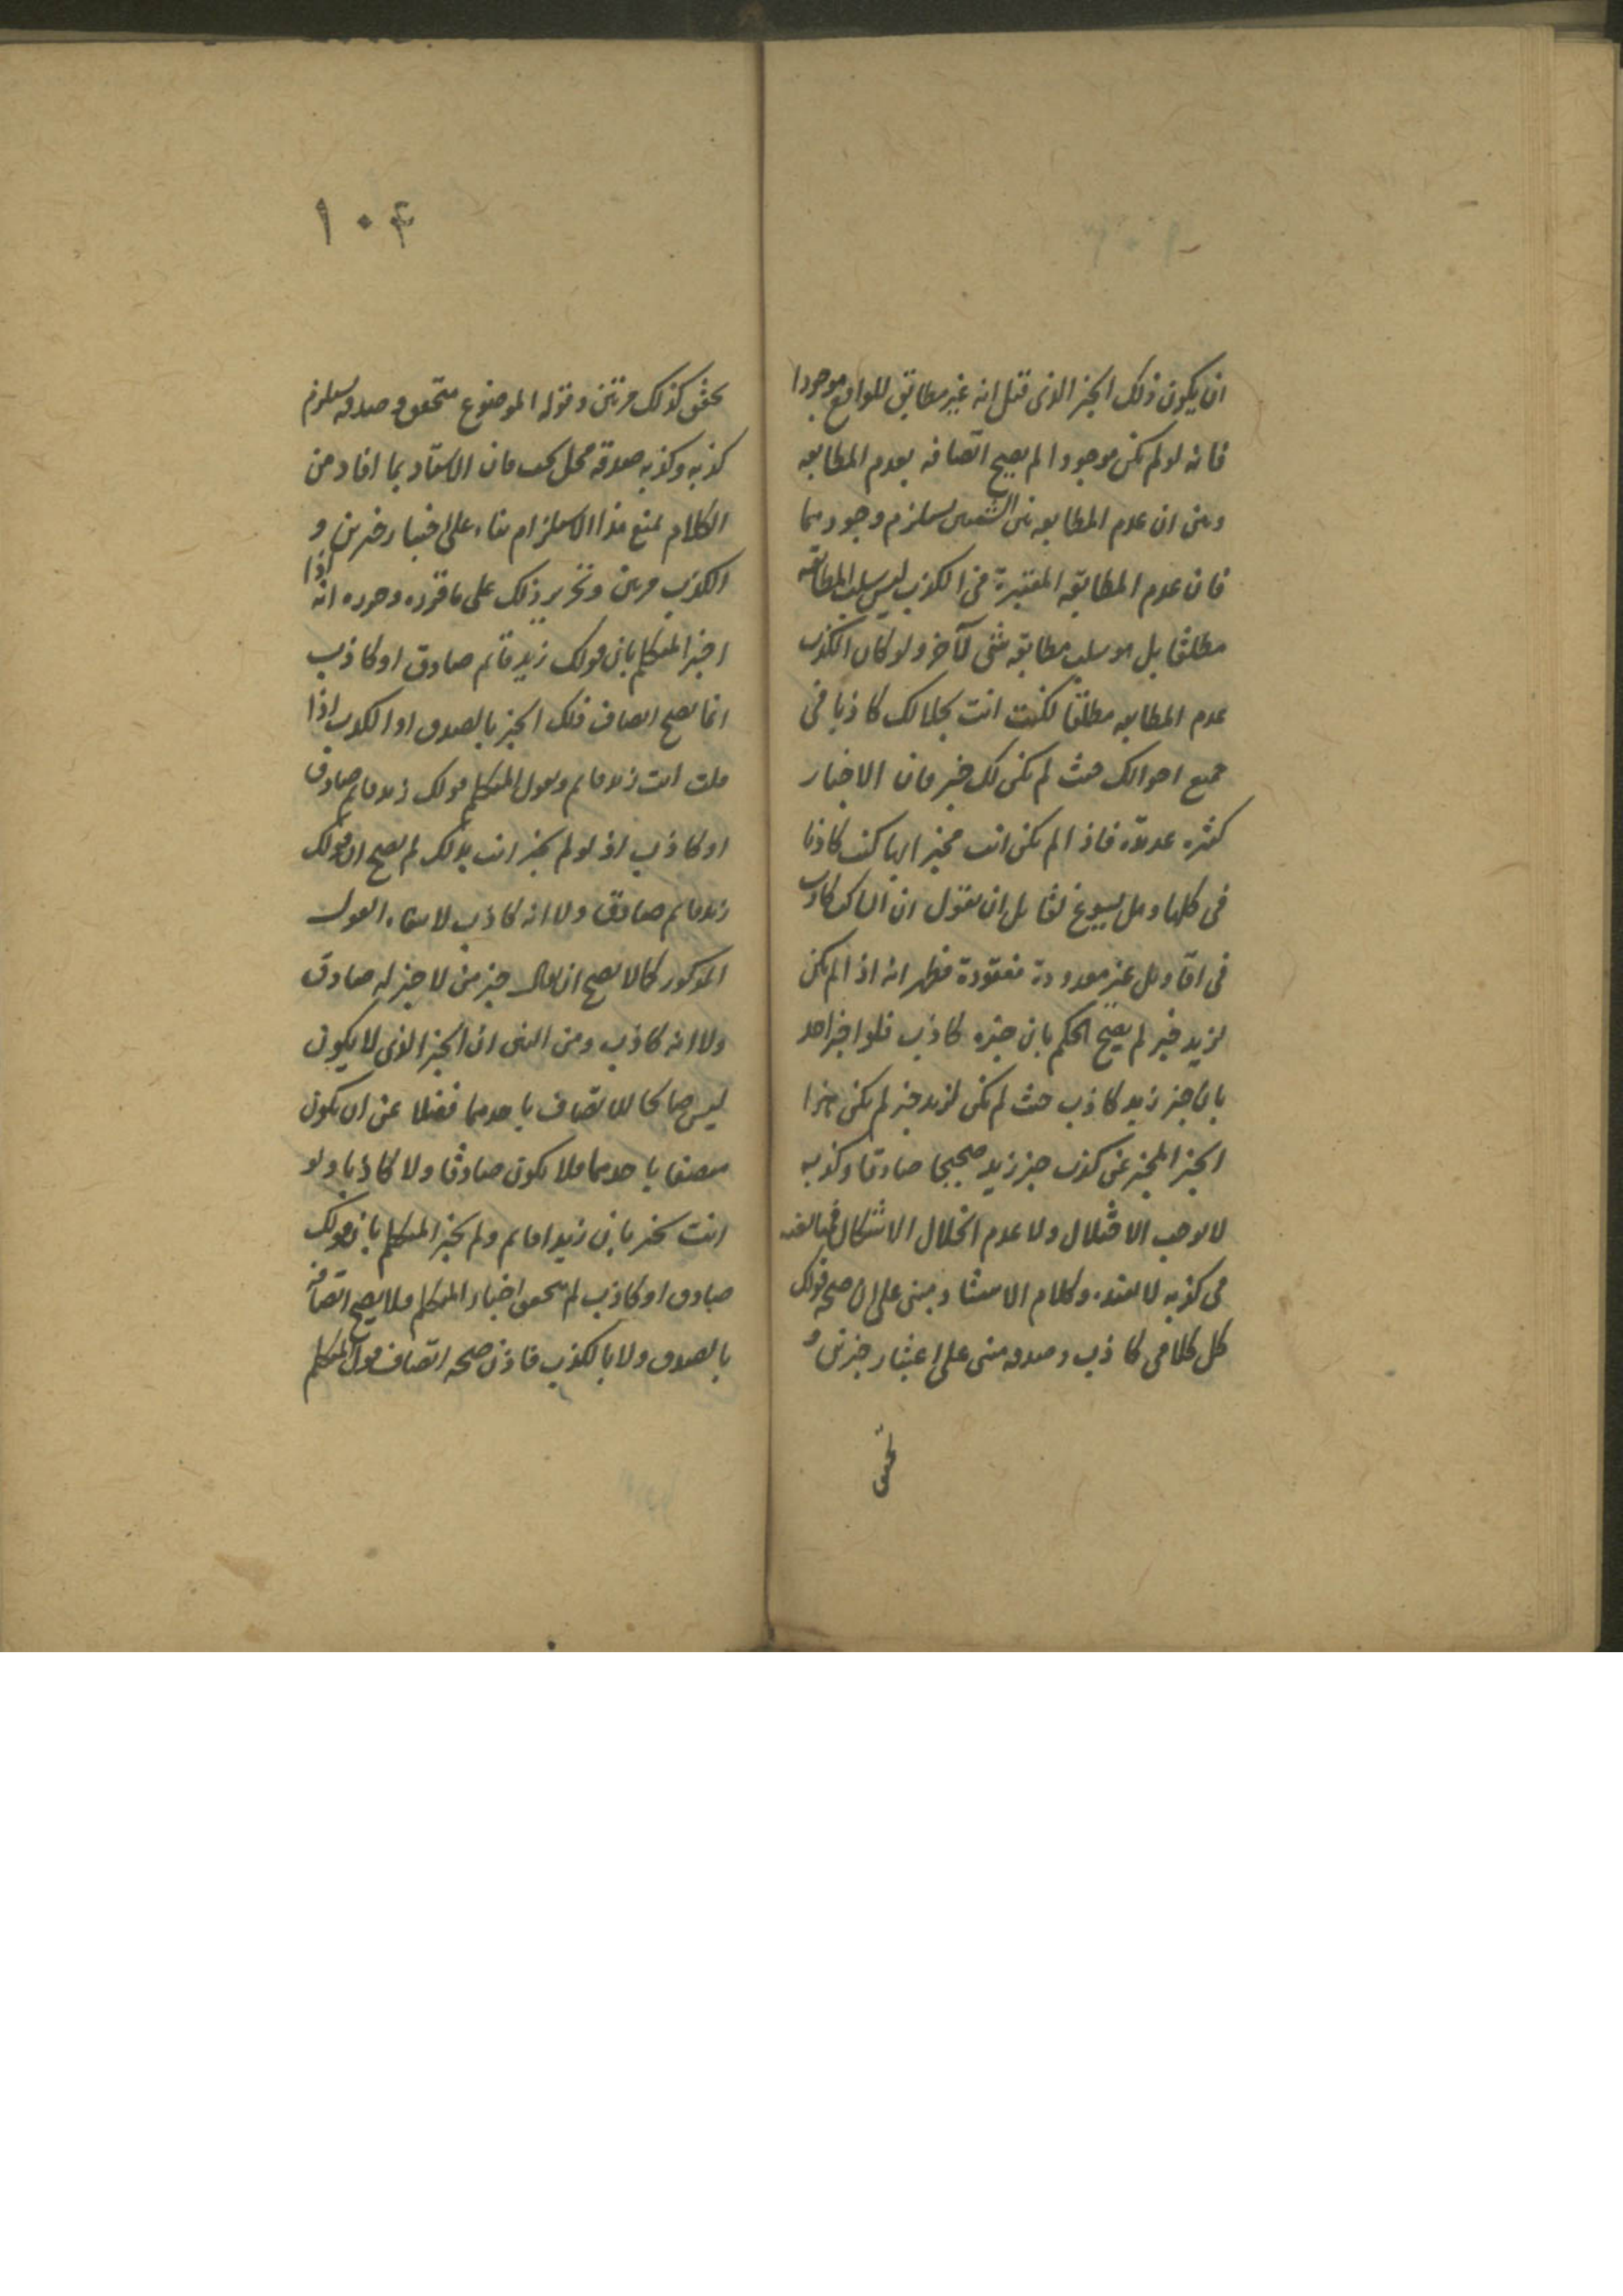 ان يكون ذلك الخبر الذى قيل انه غير مطابق للواقع موجودا
فانه لو لم يكن موجودا لم يصح اتصافه بعدم المطابقه
وبين ان عدم المطابقه بين الشيئين يستلزم وجودهما
فان عدم المطابقه المعتبرة فى الكذب ليس سلب المطابقه
مطلقا بل هو سلب مطابقه شئ لآخر ولو كان الكذب
عدم المطابقه مطلقا لكنت انت بحالك كاذبا فى
جميع احوالك حيث لم يكن لك خبر فان الاخبار
كثيره عديدة فاذا لم يكن انت مخبرا بها كنت كاذبا
فى كلها وهل يسوغ لقايل ان يقول ان الساكت كاذب
فى اقاويل غير معدودة مفقودة فظهر انه اذا لم يكن
لزيد خبر لم يصح الحكم بان خبره كاذب فلو اخبر احد
بان خبر زيد كاذب حيث لم يكن لزيد خبر لم يكن هذا
الخبر المخبر عن كذب خبر زيد صحيحا صادقا وكذبه
لا يوجب الاختلال ولا عدم انحلال الاشكال
فى كذبه لا يفيده وكلام الاستاد مبنى على ان صحة قولك
كل كلامى كاذب وصدقه مبنى على اعتبار خبرين و
تحقق
١٠٤
تحقق كذلك مرتين وقوله الموضوع متحقق وصدقه يستلزم
كذبه وكذبه صدقه محل بحث فان الاستاد بما افاد من
الكلام يمنع هذا الاستلزام بناء على اعتبار خبرين و
الكذب مرتين وتحرير ذلك على ما قرره وحرره انه اذا
اخبر المتكلم بان قولك زيد قائم صادق او كاذب
انما يصح اتصاف ذلك الخبر بالصدق او الكذب اذا
قلت انت زيد قائم ويقول المتكلم قولك زيد قائم صادق
او كاذب اذ لو لم يخبر انت بذلك لم يصح ان قولك
زيد قائم صادق ولا انه كاذب لانتفاء القول
المذكور كما لا يصح ان يقال خبر من لا خبر له صادق
ولا انه كاذب ومن البين ان الخبر الذى لا يكون
ليس صالحا للاتصاف باحدهما فضلا عن ان يكون
متصفا باحدهما فلا يكون صادقا ولا كاذبا ولو
انت تخبر بان زيدا قائم ولم يخبر المتكلم بان قولك
صادق او كاذب لم يتحقق اخبار المتكلم فلا يصح اتصافه
بالصدق ولا بالكذب فاذن صحه اتصاف قول المتكلم